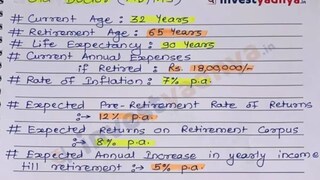 investyadnya
# Current Age : 32 Years
# Retirement Age : 65 Years
# Life Expectancy : 90 Years
# Current Annual Expenses
if Retired : Rs. 18,00,000/-
# Rate of Inflation : 7% p.a.
# Expected Pre-Retirement Rate of Returns
:→ 12% p.a.
# Expected Returns on Retirement Corpus
:→ 8% p.a.
# Expected Annual Increase in yearly income
till retirement :→ 5% p.a.